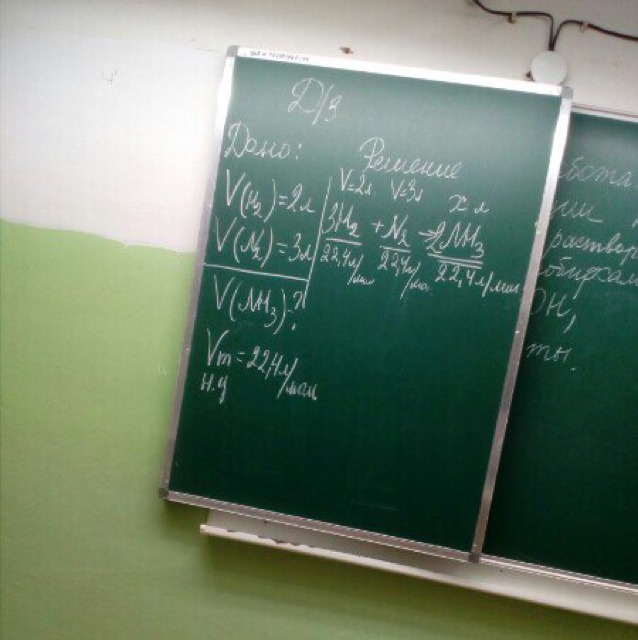 Д/з
Дано:
V(H₂)=2л
V(N₂)=3л
V(NH₃)-?
Vm=22,4л/мол
н.у
Решение
V=2л V=3л x л
3H₂ + N₂ → 2NH₃
22,4л/мол 22,4л/мо 22,4л/мол
бота
ции
раствер
обирам
OH,
ты.